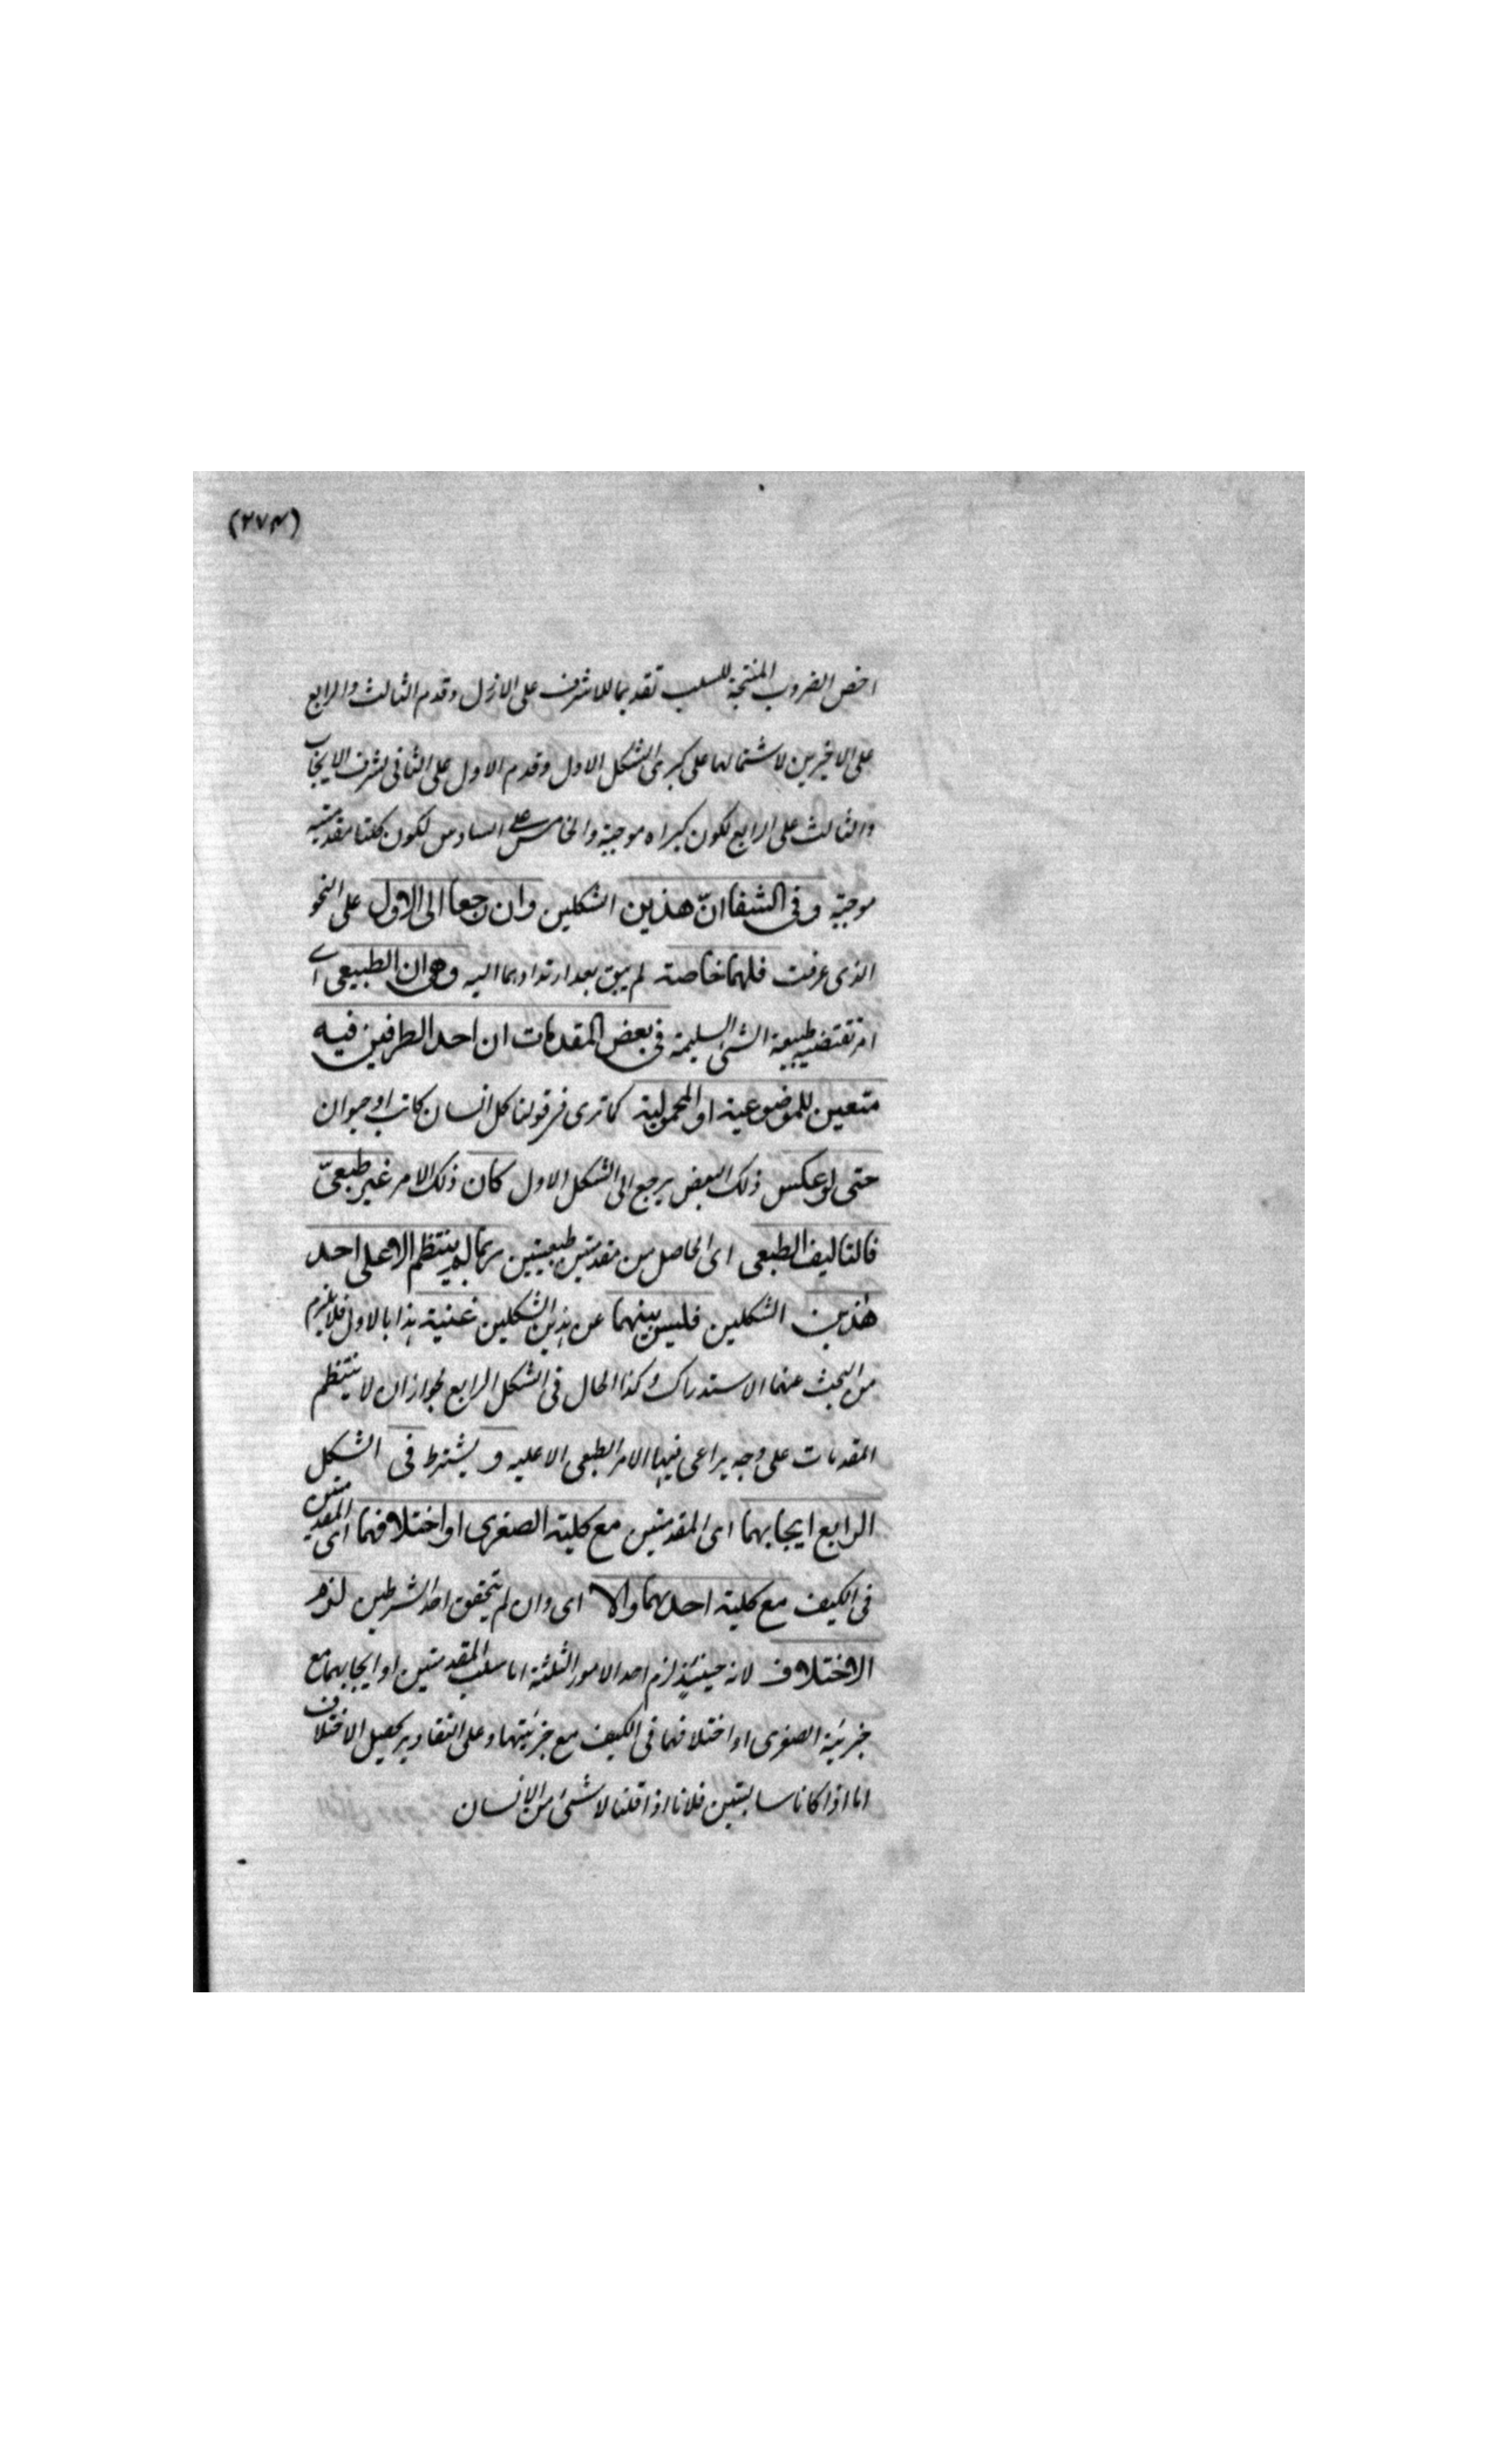 (٢٧٤)
اخص الضروب المنتجة للسلب تقديما للاشرف على الارذل وقدم الثالث والرابع
على الاخيرين لاشتمالهما على كبرى الشكل الاول وقدم الاول على الثانى لشرف الايجاب
والثالث على الرابع لكون كبراه موجبة والخامس على السادس لكون كلتا مقدمتيه
موجبة وفى الشفا انّ هذين الشكلين وان رجعا الى الاول على النحو
الذى عرفت فلهما خاصة لم يبق بعد ارتدادهما اليه وهى ان الطبيعى اے
امر تقتضيه طبيعة الشئ السليمة فى بعض المقدمات ان احد الطرفين فيه
متعين للموضوعية او المحمولية كما ترى فى قولنا كل انسان كاتب او حيوان
حتى لو عكس ذلك البعض يرجع الى الشكل الاول كان ذلك الامر غير طبعىّ
فالتاليف الطبعى اى الحاصل من مقدمتين طبعيتين ربما لم ينتظم الا على احد
هذين الشكلين فليس بينهما عن هذين الشكلين غنية هذا بالاول فلا يلزم
من البحث عنهما الاستدراك وكذا الحال فى الشكل الرابع لجواز ان لا ينتظم
المقدمات على وجه يراعى فيها الامر الطبعى الا عليه و يشترط فى الشكل
الرابع ايجابهما اى المقدمتين مع كلية الصغرى او اختلافهما اى المقدمتين
فى الكيف مع كلية احدهما والا اى وان لم يتحقق احد الشرطين لزم
الاختلاف لانه حينئذ لزم احد الامور الثلثة اما سلب المقدمتين او ايجابهما مع
جزئية الصغرى او اختلافهما فى الكيف مع جزئيتهما وعلى التقادير يحصل الاختلاف
اما اذا كانا سالبتين فلانا اذا قلنا لا شئ من الانسان